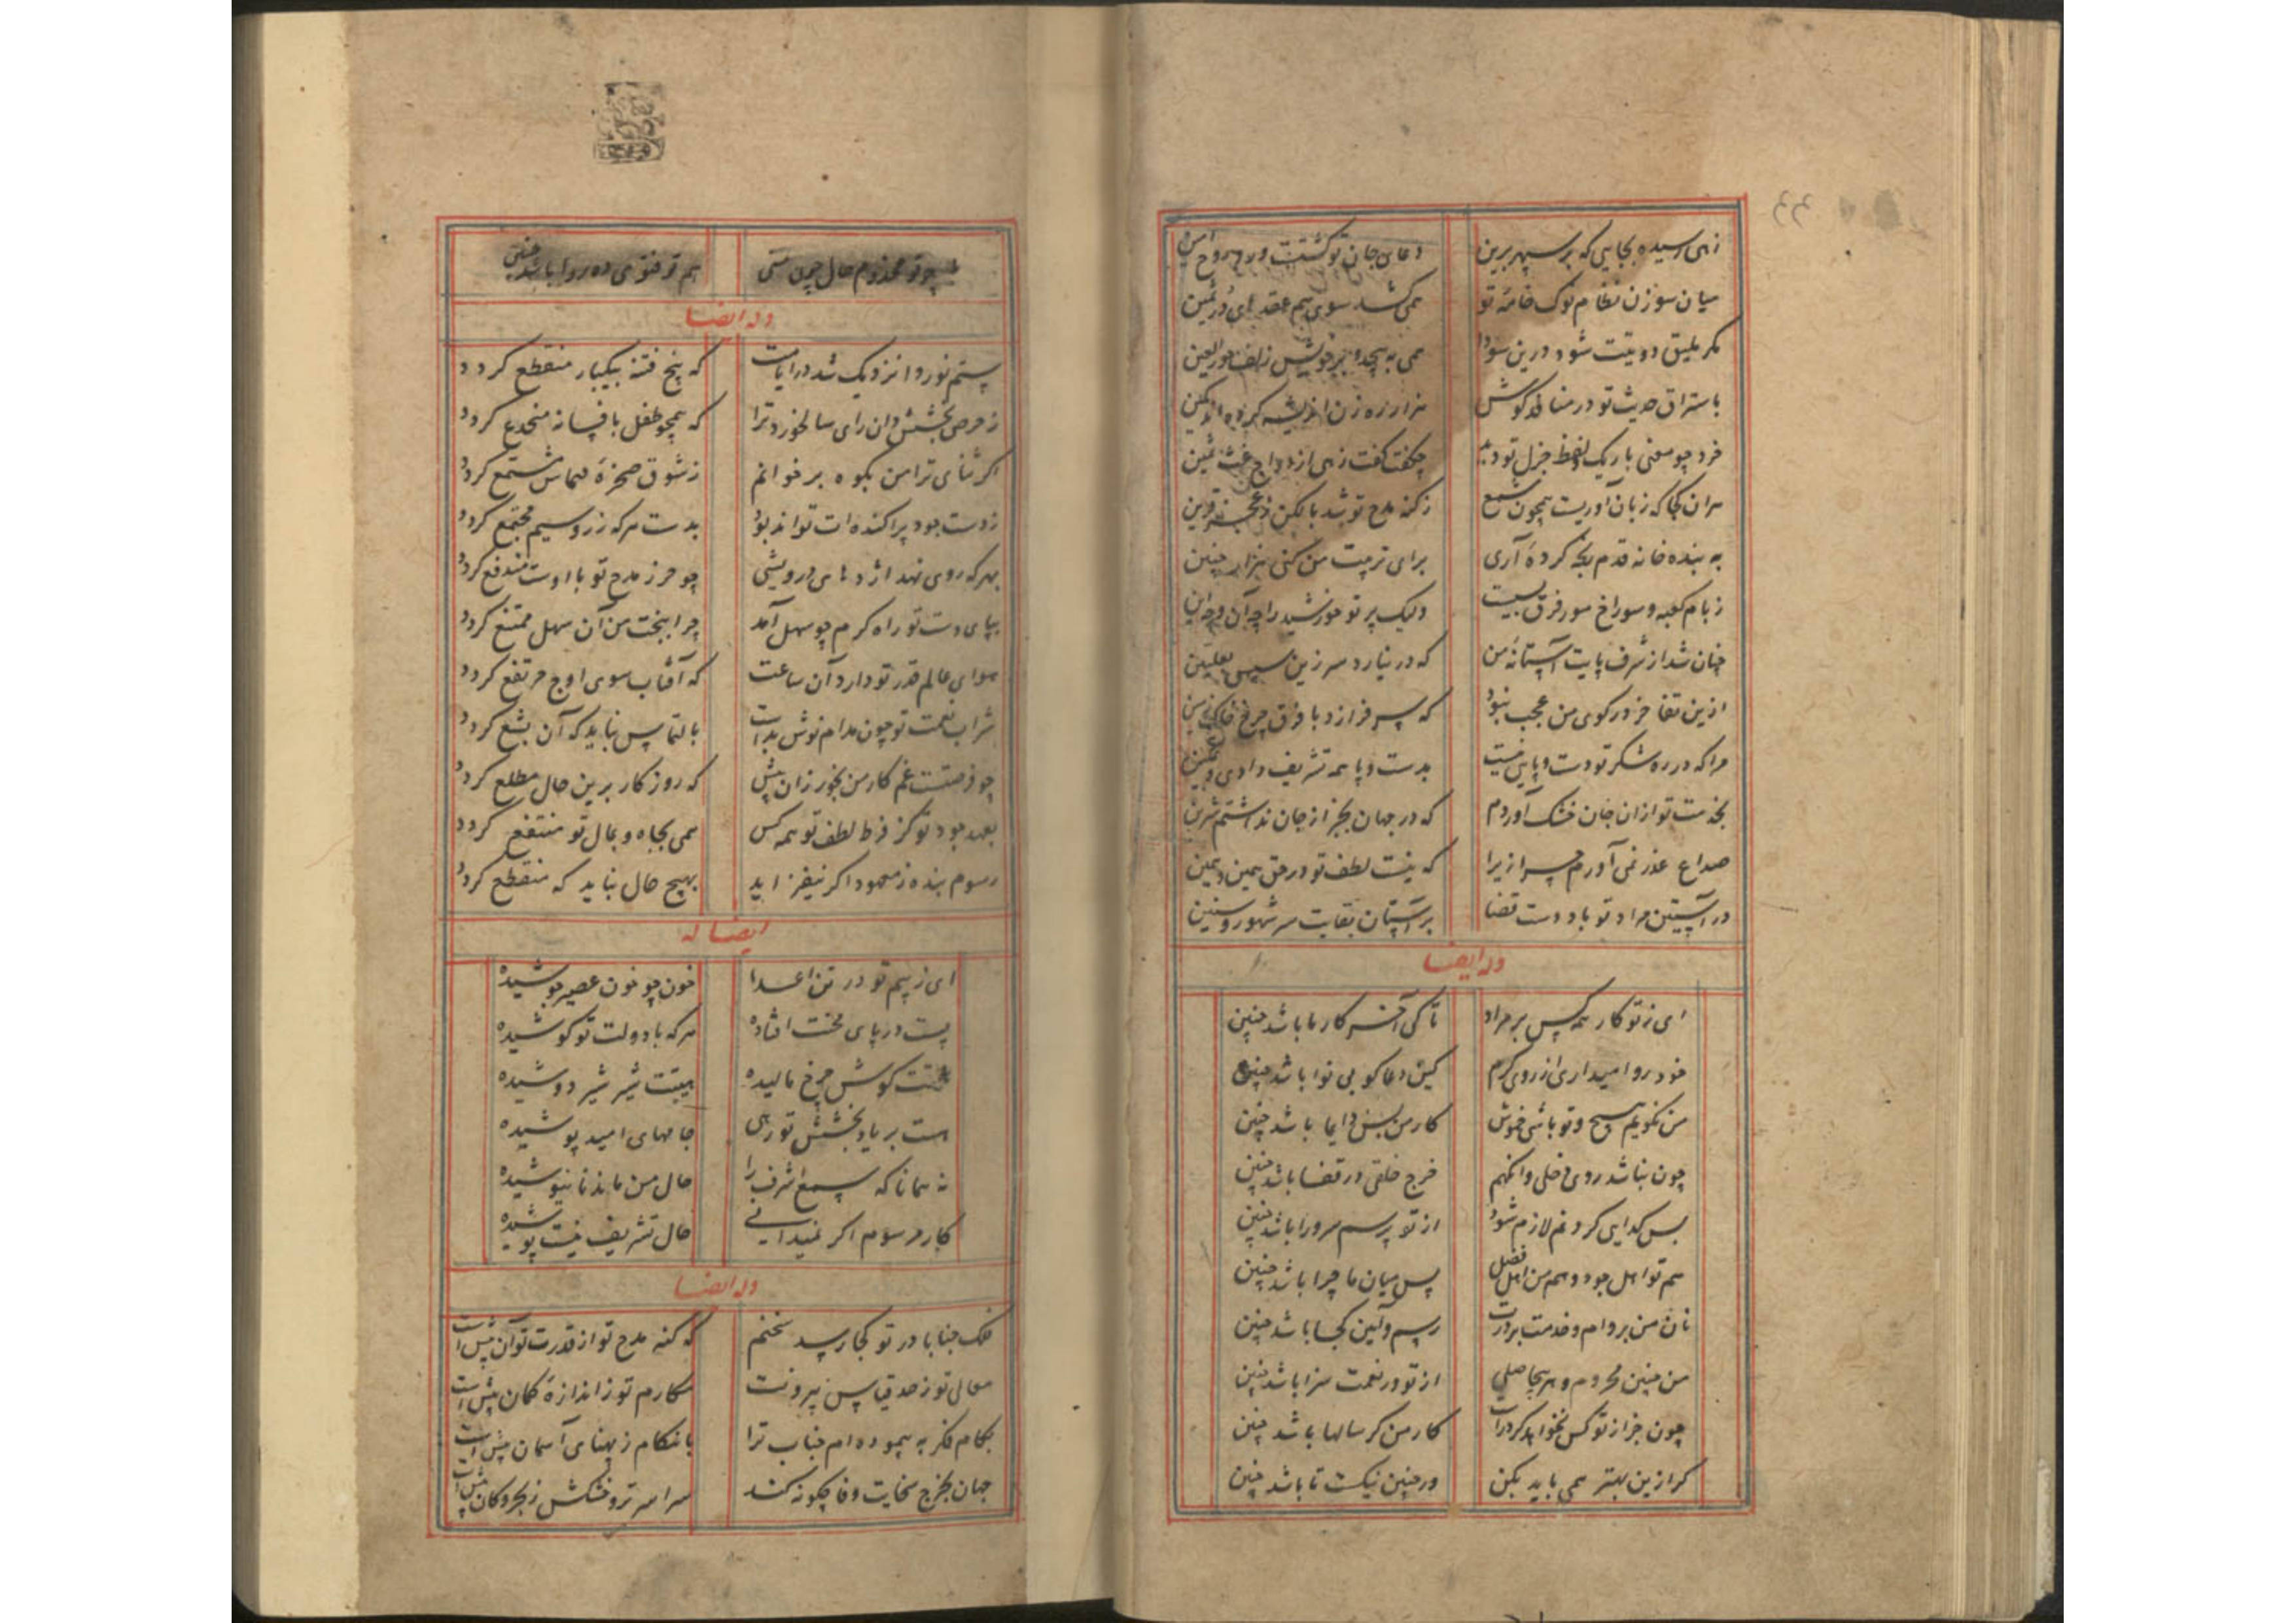 زهی رسیده بجایی که بر سپهر برین دعای جان تو گشتست ورد روح امین
میان سوزن نظام نوک خامهٔ تو همی کشد سوی هم عقدهای در ثمین
مگر ملیق دویتت شود درین سودا همی به پیچد بر خویش زلف حور العین
باستراق حدیث تو در منافذ گوش هزار زه زن اندیشه کرده‌اند کمین
خرد چو معنی باریک و لفظ جزل تو دید چگفت گفت زهی ازدواج غث ثمین
هران کجا که زبان آوریست همچون شمع ز کنه مدح تو شد با لکن ز عجز قرین
به بنده خانه قدم رنجه کردهٔ آری برای تربیت من کنی هزار چنین
ز بام کعبه و سوراخ مور فرق بسیت ولیک پرتو خورشید را چه آن و چه این
چنان شد از شرف پایت آستانهٔ من که در نیارد سر زین سپس بعلیین
ازین تفاخر در کوی من عجب نبود که سر فرازد با فرق چرخ خاک زمین
مرا که در ره شکر تو دست و پایی نیست بدست و پا همه تشریف دادی و تمکین
بخدمت تو ازان جان خشک آوردم که در جهان بجز از جان نداشتم شیرین
صداع عذر نمی آورم چرا زیرا که نیست لطف تو در حق همین و همین
در آستین مراد تو باد دست قضا بر آستان بقایت سر شهور و سنین
وله ایضا
ای ز تو کار همه کس بر مراد تا کی آخر کار ما باشد چنین
خود روا میداری از روی کرم کین دعا گو بی نوا باشد چنین
من نگویم هیچ و تو باشی خموش کار من بس دایما باشد چنین
چون نباشد روی دخلی وانگهم خرج خلقی در قضا باشد چنین
بس گدایی کردنم لازم شود از تو پرسم سرورا باشد چنین
هم تو اهل جود و هم من اهل فضل پس میان ما چرا باشد چنین
نان من بر وام و خدمت بر درت رسم و آیین کجا باشد چنین
من چنین محروم و هر بیحاصلی از تو در نعمت سزا باشد چنین
چون جز از تو کس نخواهد کرد راست کار من گر سالها باشد چنین
گر ازین بهتر همی باید بکن ور چنین نیکست تا باشد چنین
چو تو مخدوم حال چون منی هم تو فتوی ده روا باشد چنین
وله ایضا
ستم نوردا نزدیک شد در ایامت که بیخ فتنه بیکبار منقطع گردد
ز حرص بخشش دان رای سالخورد ترا که همچو طفل بافسانه منخدع گردد
اگر ثنای ترا من بکوه بر خوانم ز شوق صخرهٔ صماش مستمع گردد
ز دست جود پراکنده‌ات تواند بود بدست هر که زر و سیم مجتمع گردد
بهر که روی نهد اژدهای درویشی چو حرز مدح تو با اوست مندفع گردد
بپای دست تو راه کرم چو سهل آمد چرا ببخت من آن سهل ممتنع گردد
هوای عالم قدر تو دارد آن ساعت که آفتاب سوی اوج مرتفع گردد
شراب نعمت تو چون مدام نوش بدست بالتماس نباید که آن بشع گردد
چو فرصتست غم کار من بخور زان پیش که روزگار برین حال مطلع گردد
بعهد جود تو کز فرط لطف تو همه کس همی بجاه و بمال تو منتفع گردد
رسوم بنده ز معهود اگر نیفزاید بهیچ حال نباید که منقطع گردد
ایضا له
ای ز بیم تو در تن اعدا خون چو خون عصیر جوشیده
پست در پای محنت افتاده هر که با دولت تو کوشیده
همتت گوش چرخ مالیده هیبتت شیر شیر دوشیده
هست بر یاد بخشش تو رهی جامهای امید پوشیده
نه همانا که سمع اشرف را حال من ماند نانیوشیده
کار مرسوم اگر نمیدانی حال تشریف نیست پوشیده
وله ایضا
فلک جنابا در تو کجا رسد سخنم که کنه مدح تو از قدرت توان بیش است
معالی تو ز حد قیاس بیرونست مکارم تو ز اندازهٔ گمان بیش است
بگام فکر به پیموده‌ام جناب ترا بانتکام ز پهنای آسمان بیش است
جهان بخرج سخایت وفا چگونه کند سراسر تر و خشکش ز بحر و کان بیش است